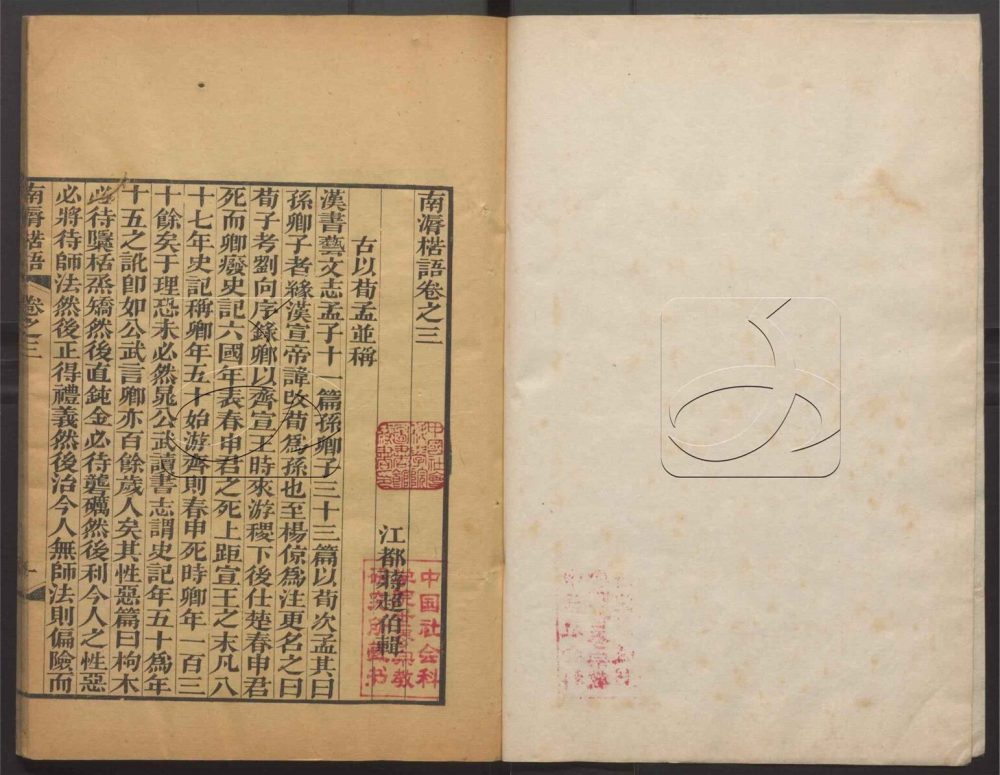 南漘楛語卷之三
江都蔣超伯輯
古以荀孟並稱
漢書藝文志孟子十一篇孫卿子三十三篇以荀次孟其曰
孫卿子者緣漢宣帝諱改荀為孫也至楊倞為注更名之曰
荀子考劉向序錄卿以齊宣王時來游稷下後仕楚春申君
死而卿癈史記六國年表春申君之死上距宣王之末凡八
十七年史記稱卿年五十始游齊則春申死時卿年一百三
十餘矣于理恐未必然晁公武讀書志謂史記年五十為年
十五之訛卽如公武言卿亦百餘歲人矣其性惡篇曰枸木
必待檃栝烝矯然後直鈍金必待礱礪然後利今人之性惡
必將待師法然後正得禮義然後治今人無師法則偏險而
南漘楛語
卷之三
一
中国社会科
学院世界宗教
研究所藏书